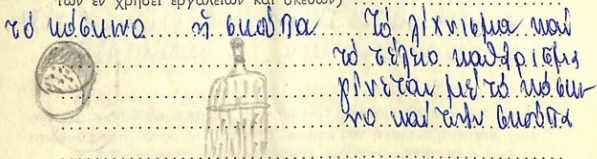 των εν χρήσει εργαλείων και σκευών)
τό κόσκινο ἤ σκούπα Τό λίχνισμα καί
τό τέλειο καθάρισμα
γίνεται μέ τό κόσκι-
νο καί τήν σκούπα